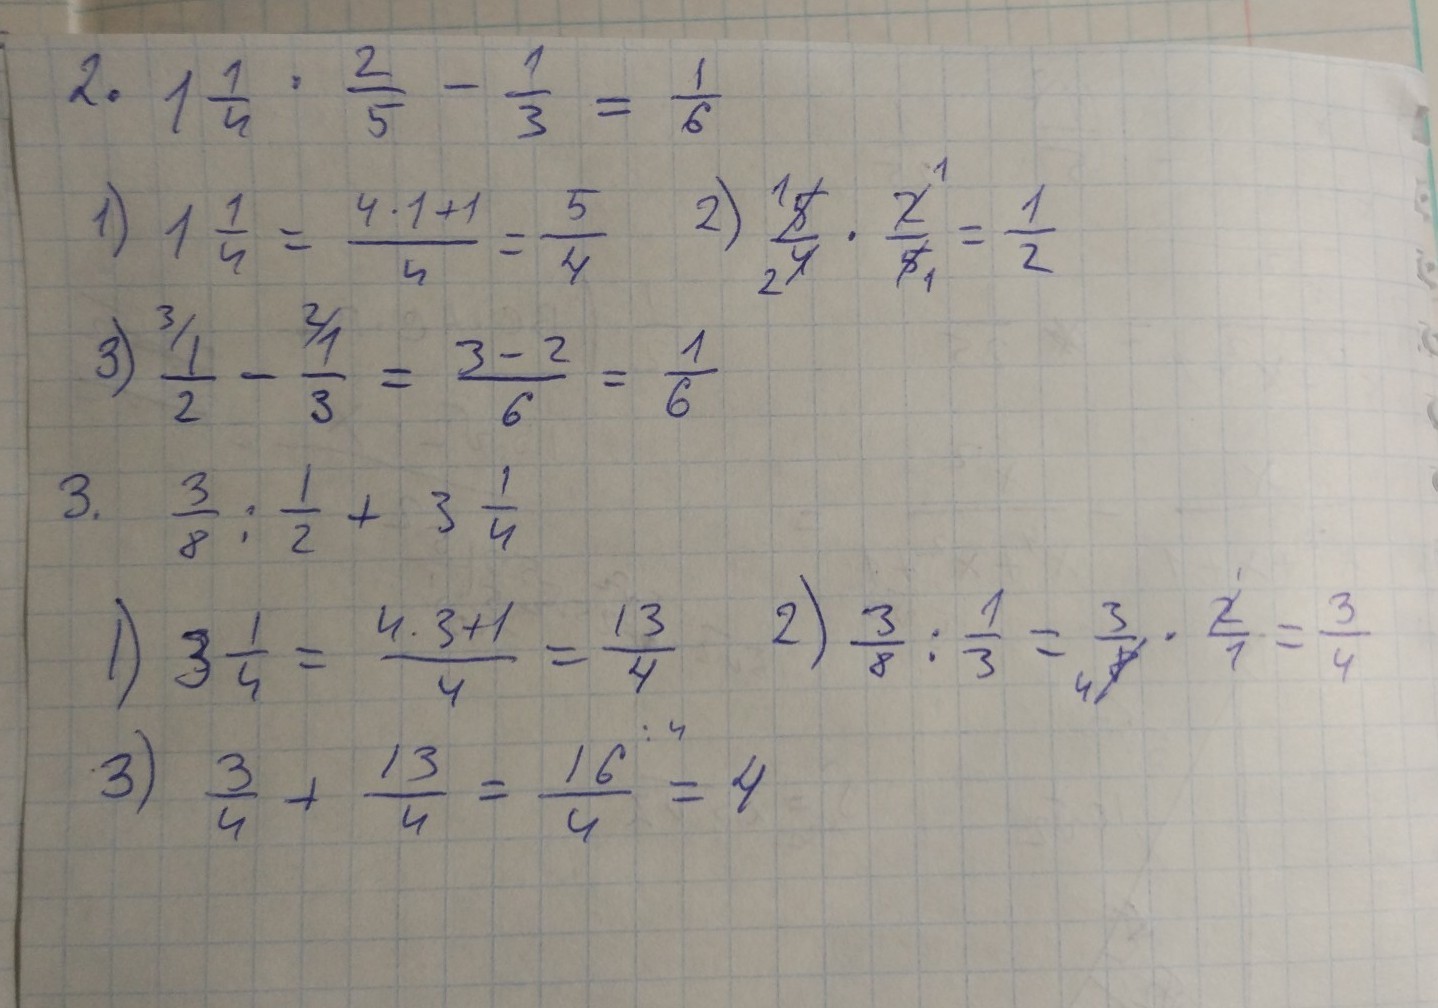 2. 1 1/4 · 2/5 - 1/3 = 1/6
1) 1 1/4 = (4·1+1)/4 = 5/4 2) 5/4 · 2/5 = 1/2
3) 1/2 - 1/3 = (3-2)/6 = 1/6
3. 3/8 : 1/2 + 3 1/4
1) 3 1/4 = (4·3+1)/4 = 13/4 2) 3/8 : 1/3 = 3/8 · 2/1 = 3/4
3) 3/4 + 13/4 = 16/4 :4 = 4